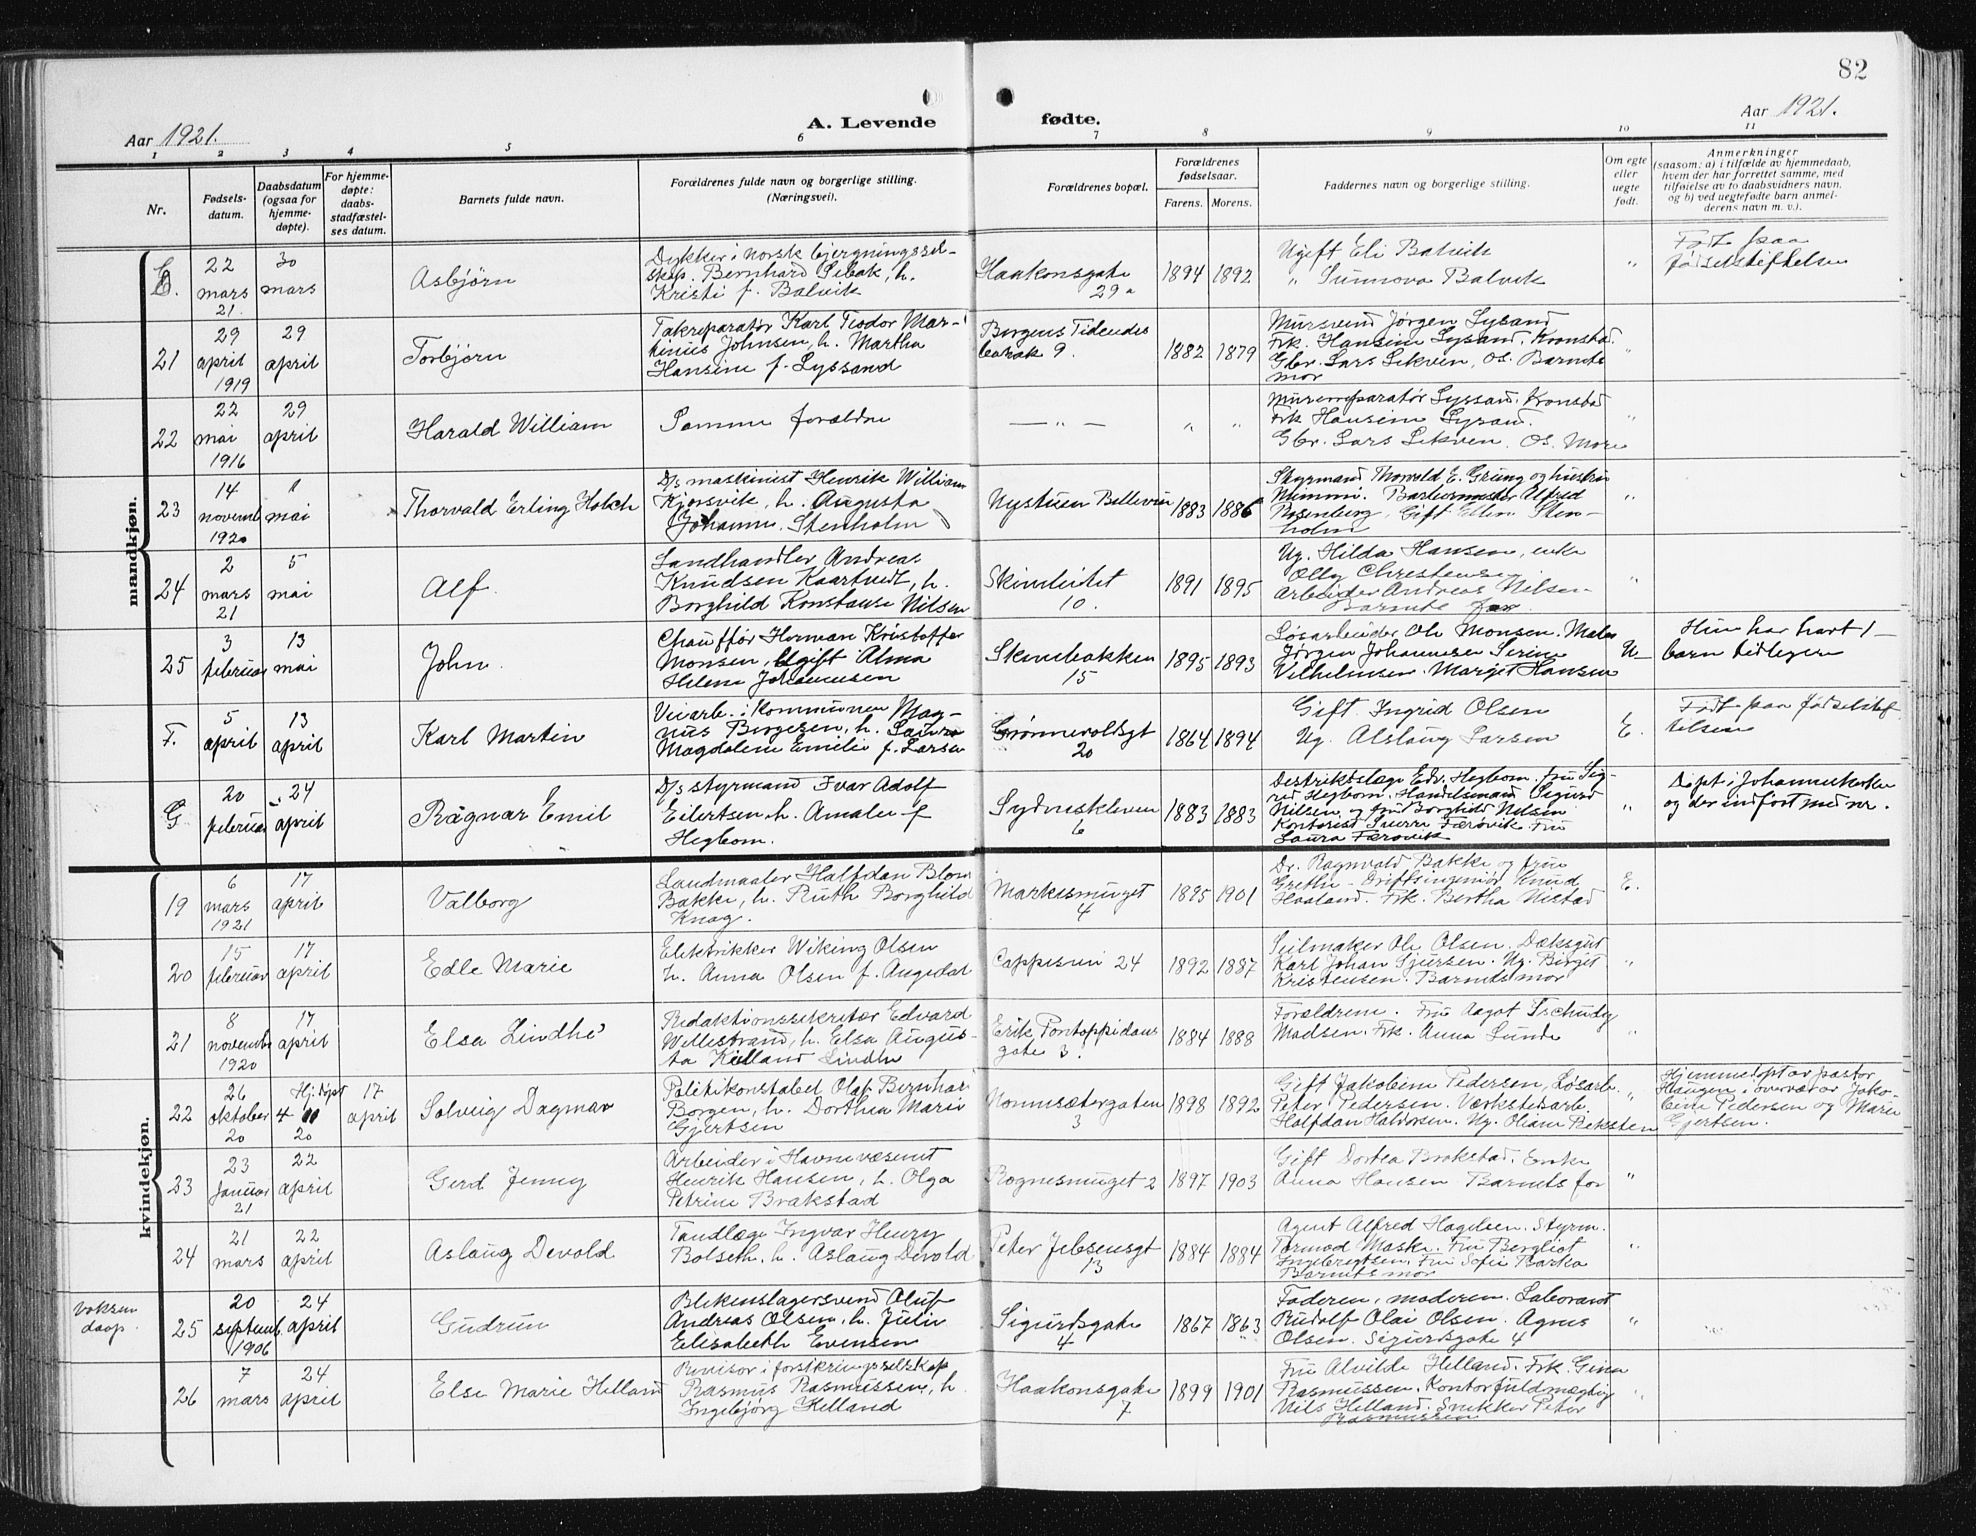 82
Aar 1921.
A. Levende
fødte.
Aar 1921.
1 2 3 4 5 6 7 8 9 10 11
Nr.
Fødsels-
datum.
Daabsdatum
(ogsaa for
hjemme-
døpte).
For hjemme-
døpte:
daabs-
stadfæstel-
ses datum.
Barnets fulde navn.
Forældrenes fulde navn og borgerlige stilling.
(Næringsvei).
Forældrenes bopæl.
Forældrenes
fødselsaar.
Farens. Morens.
Faddernes navn og borgerlige stilling.
Om egte
eller
uegte
født.
Anmerkninger
(saasom: a) i tilfælde av hjemmedaab,
hvem der har forrettet samme, med
tilføielse av to daabsvidners navn,
og b) ved uegtefødte barn anmel-
derens navn m. v.).
mandkjøn.
E.
22
mars
21.
30
mars
Asbjørn
Dykker i norsk bjergningssel-
skap. Bernhard Sebak, h.
Kristi f. Balvik
Haakonsgate
29a
1894 1892
Ugift Eli Balvik
" Sunnova Balvik
"
Født paa
fødselstiftelsen
21
29
april
1919
29
april
Torbjørn
Takreparatør Karl Teodor Mar-
tinius Johnsen, h. Martha
Hansine f. Lyssand
Bergens Tidendes
barak 9.
1882 1879
Mursvend Jørgen Lysand
Frk. Hansine Lysand, Kronstad.
Gbr. Lars Lekven, Os. Barnets
mor
"
22
22
mai
1916
29
april
Harald William
Samme forældre
— " —
" "
Murerreparatør Lyssand, Kronstad
Frk Hansine Lysand.
Gbr. Lars Lekven. Os. More
"
23
14
novemb
1920
1
mai
Thorvald Erling Holch
D/s maskinist Henrik William
Kjorsvik, h. Augusta
Johanne, Stenholm
Nystuen Bellevue
1883 1886
Styrmand Thorvald E. Grung og hustru
Mimmi. Barbermester Alfred
Rosenberg, Gift Ellen Sten-
holm
"
24
2
mars
21
5
mai
Alf.
Landhandler Andreas
Knudsen Kaartvedt, h.
Borghild Konstanse Nilsen
Skivebakken
10.
1891 1895
Ug. Hilda Hansen, enke
Olly Christensen
Arbeider Andreas Nilsen
Barnets far
"
25
3
februar
13
mai
John.
Chauffør Herman Kristoffer
Monsen, Ugift Alma
Helene Johannesen
Skivebakken
15
1895 1893
Løsarbeider Ole Monsen. Maler
Jørgen Johannesen Serine
Vilhelmsen. Margit Hansen
U—
Hun har havt 1
barn tidligere
F.
5
april
13
april
Karl Martin
Veiarb. i kommunen Mag-
nus Borgesen, h. Laura
Magdalene Emelie f. Larsen
Grønnevoldsgt
20
1864 1894
Gift Ingrid Olsen
Ug. Aslaug Larsen
E.
Født paa fødselstif-
telsen
G
20
februar
24
april
Ragnar Emil
D/s styrmand Ivar Adolf
Eilertsen h. Amalie f
Hegbom.
Sydneskleven
6
1883 1883
Destriktslæge Edv. Hegbom. fru Sig-
rid Hegbom. Handelsmand Sigurd
Nilsen og fru Borghild Nilsen
Kontorist Sverre Færøvik. Fru
Laura Færøvik
"
Døpt i Johanneskirken
og der indført med nr.
kvindekjøn.
19
6
mars
1921
17
april
Valborg
Landmaaler Halfdan Blom
Bakke, h. Ruth Borghild
Knag.
Markesmuget
4
1895 1901
Dr. Ragnvald Bakke og frue
Grethe - Driftsingeniør Knud
Haaland. Frk. Bertha Nestad
E.
20
15
februar
17
april
Edle Marie
Elektrikker Wiking Olsen
h. Anna Olsen f. Augedal
Cappesvei 24
1892 1887
Seilmaker Ole Olsen. Dæksgut
Karl Johan Sjursen. Ug. Birgit
Kristensen. Barnets mor
"
21
8
novembr
1920
17
april
Elsa Lindhé
Redaktionssekritær Edvard
Wellestrand, h. Elsa Augus-
ta Kielland Lindhe
Erik Pontoppidans
gate 3.
1884 1888
Forældrene. Fru Aagot Tschudy
Madsen. Frk. Anna Lunde
"
22
26
oktober
20
Hj. døpt
4
20
17
april
Solveig Dagmar
Politikonstabel Olaf Bernhar
Borgen, h. Dorthea Marie
Gjertsen
Nonnesætergaten
3
1898 1892
Gift Jakobine Pedersen, Løsarb.
Peter Pedersen. Værkstedsarb.
Halfdan Halvorsen. Ug. Oliane Beksten
"
Hjemmedøpt av pastor
Haugen i overvær av Jako-
bine Pedersen og Marie
Gjertsen.
23
23
Januar
21
22
april
Gerd Jenny
Arbeider i Havnevæsenet
Henrik Hansen, h. Olga
Petrine Brakstad
Rognesmuget 2
1897 1903
Gift Dortea Brakstad. Enke
Anna Hansen Barnets far
"
24
21
mars
22
april
Aslaug Devold
Tandlæge Ingvar Henry
Bolseth. h. Aslaug Devold
Peter Jebsensgt
13
1884 1884
Agent Alfred Hagelsen. Styrm.
Tormod Maske. Fru Bergliot
Ingebrigtsen. Fru Sofie Barka
Barnets mor
"
voksen
daap.
25
20
septemb.
1906
24
april
Gudrun
Blikenslagersvend Oluf
Andreas Olsen, h. Julie
Elisabeth Evensen
Sigurdsgate
4
1867 1863
Faderen, moderen. Laborant
Rudolf Olai Olsen. Agnes
Olsen. Sigurdsgate 4
"
26
7
mars
24
april
Else Marie Helland
Revisor i forsikringsselskap
Rasmus Rasmussen, h.
Ingebjørg Helland
Haakonsgate
7
1899 1901
Fru Alvilde Helland. Frk. Gina
Rasmussen. Kontorfuldmægtig
Nils Helland. Snekker Peter
Rasmussen
"